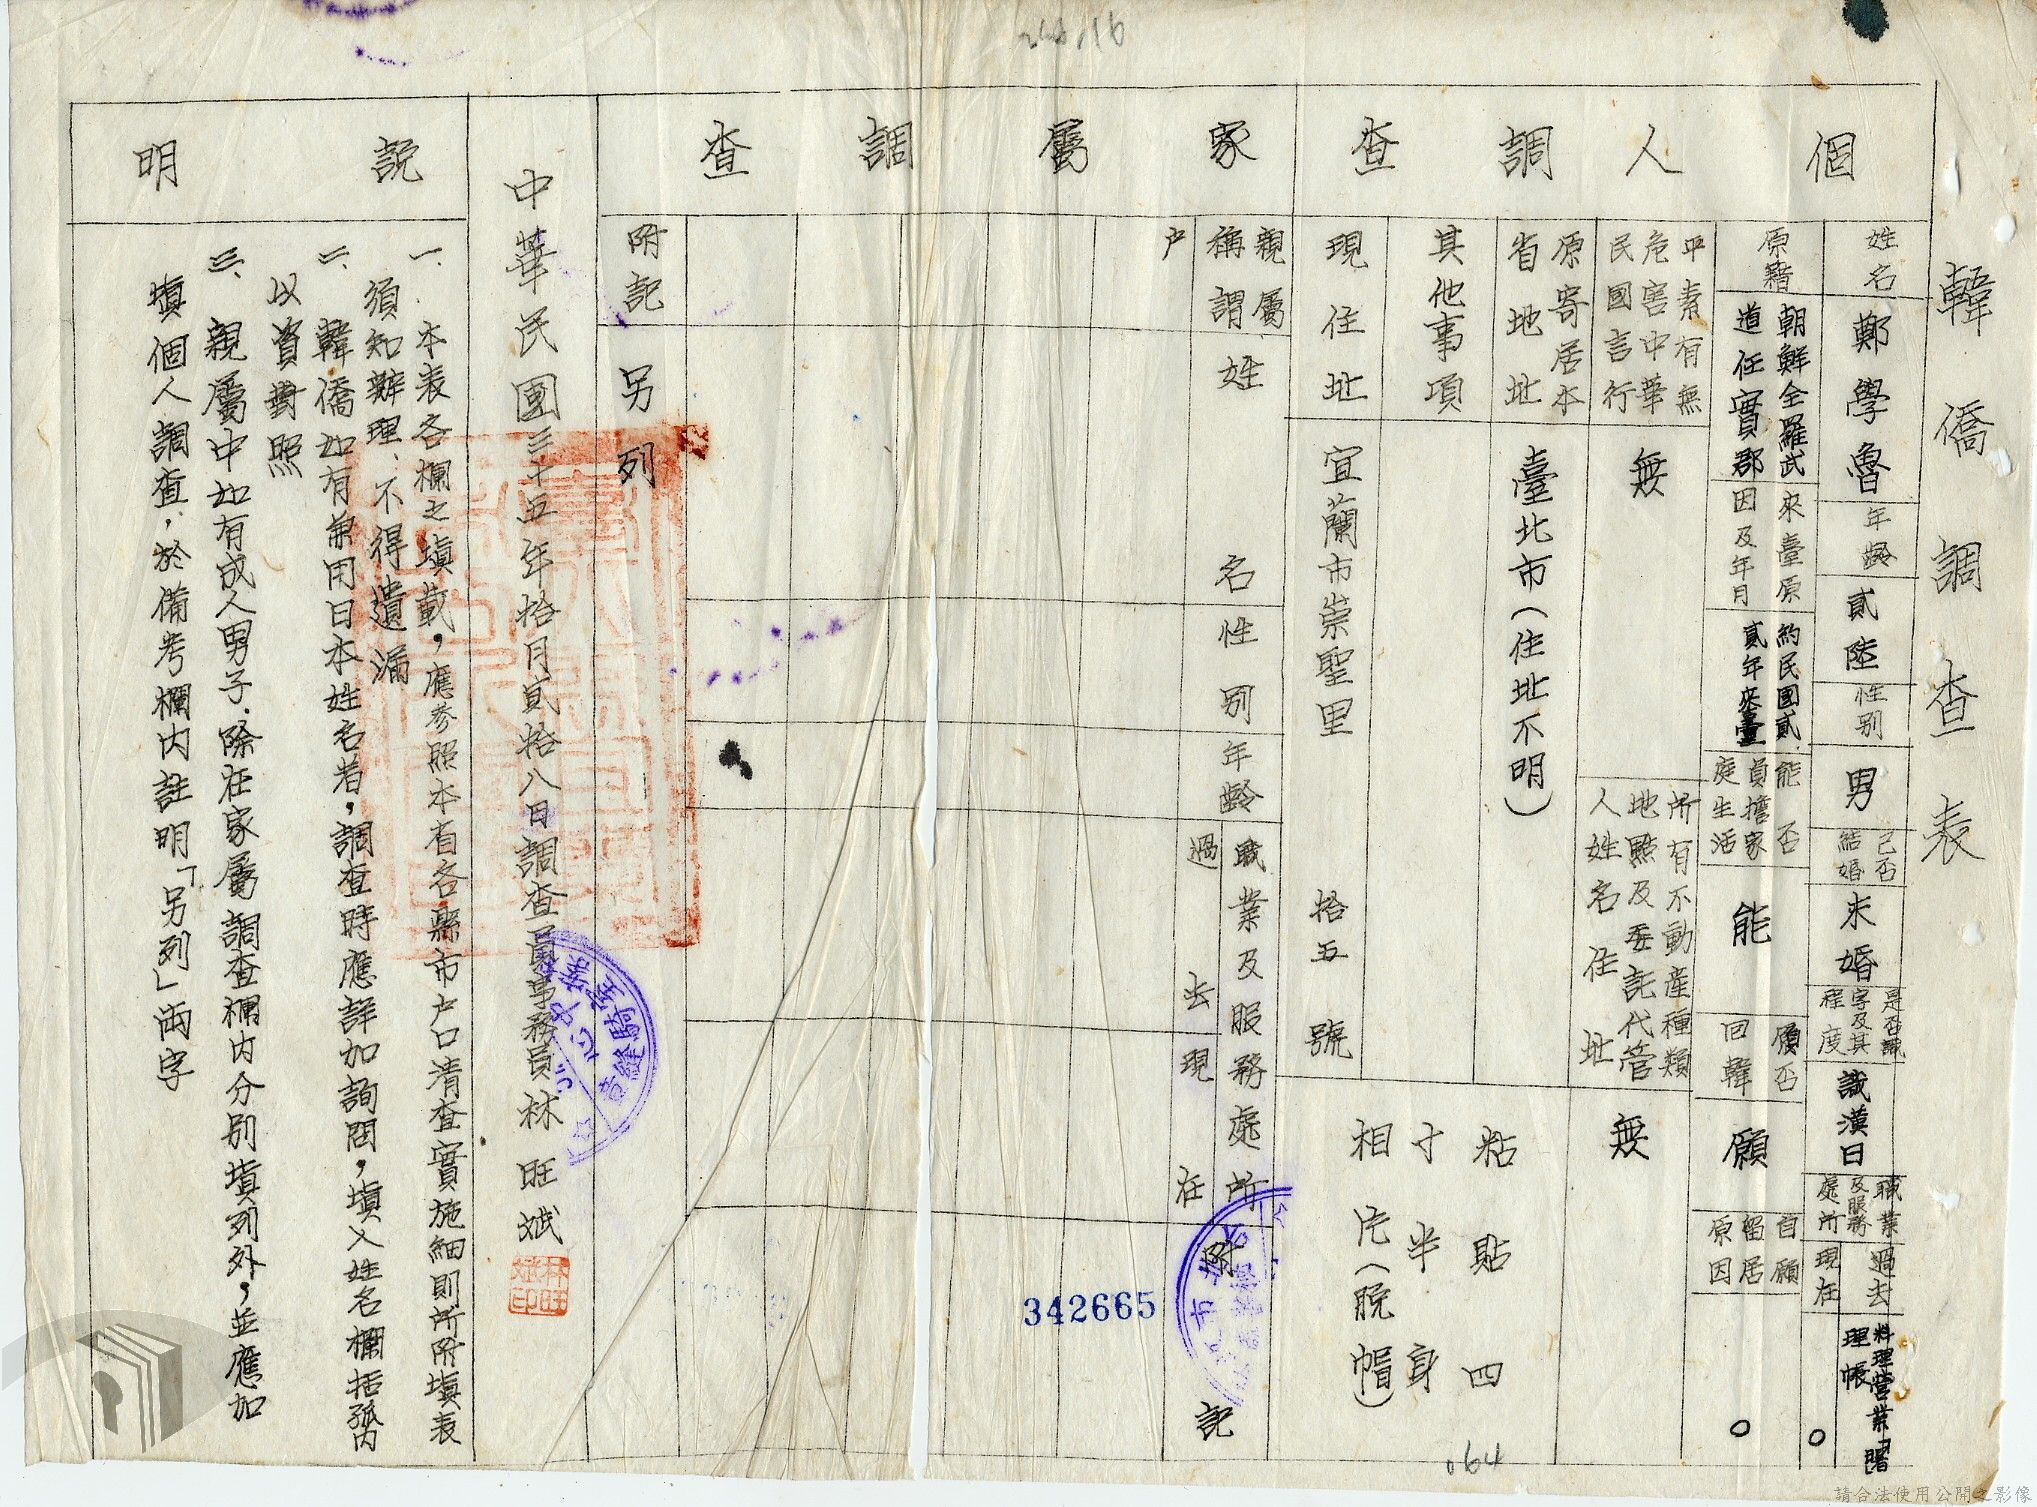 韓僑調查表
個人調查
姓名
鄭學魯
年齡
貳陸
性別
男
已否結婚
未婚
是否識字及其程度
識漢日
職業及服務處所
過去
料理營業
理帳
現在
○
原籍
朝鮮全羅武
道任實郡
來臺原因及年月
約民國貳
貳年來臺
能否負擔家庭生活
能
願否回韓
願
自願留居原因
○
平素有無危害中華民國言行
無
所有不動產種類地點及委託代管人姓名住址
無
原寄居本省地址
臺北市(住址不明)
其他事項
現住址
宜蘭市崇聖里 拾五 號
粘貼四
寸半身
相片(脫帽)
家屬調查
親屬稱謂
姓名
性別
年齡
職業及服務處所
過去
現在
附記
戶
342665
附記
另列
中華民國三十五年拾月貳拾八日調查員事務員林旺斌
林旺斌印
說明
一、本表各欄之填載,應參照本省各縣市戶口清查實施細則所附填表
須知辦理、不得遺漏
二、韓僑如有兼用日本姓名者,調查時應詳加詢問,填入姓名欄括弧內
以資對照
三、親屬中如有成人男子、除在家屬調查欄內分別填列外,並應加
填個人調查,於備考欄內註明「另列」兩字
064
請合法使用公開之影像